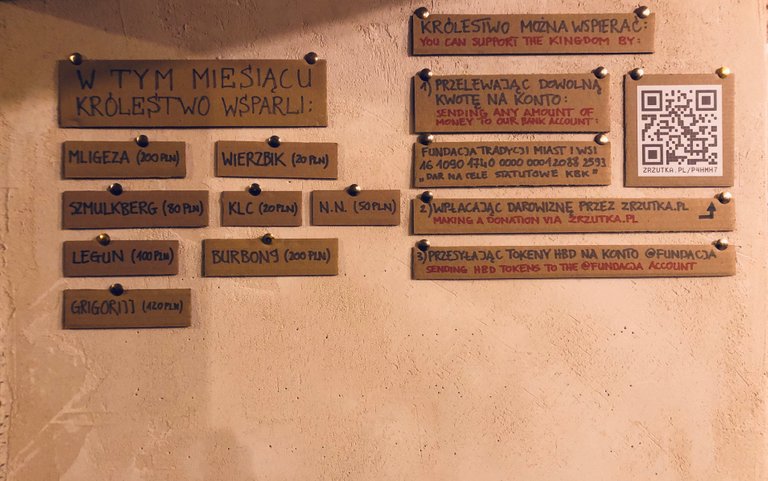 W TYM MIESIĄCU
KRÓLESTWO WSPARLI:
MLIGEZA (200 PLN)
WIERZBIK (20 PLN)
SZMULKBERG (80 PLN)
KLC (20 PLN)
N.N. (50 PLN)
LEGUN (100 PLN)
BURBON9 (200 PLN)
GRIGORIJ (120 PLN)
KRÓLESTWO MOŻNA WSPIERAĆ:
YOU CAN SUPPORT THE KINGDOM BY:
1) PRZELEWAJĄC DOWOLNĄ
KWOTĘ NA KONTO:
SENDING ANY AMOUNT OF
MONEY TO OUR BANK ACCOUNT:
FUNDACJA TRADYCJI MIAST I WSI
16 1090 1740 0000 0001 2088 2593
„DAR NA CELE STATUTOWE KBK"
ZRZUTKA.PL/P4HMH7
2) WPŁACAJĄC DAROWIZNĘ PRZEZ ZRZUTKA.PL
MAKING A DONATION VIA ZRZUTKA.PL
3) PRZESYŁAJĄC TOKENY HBD NA KONTO @FUNDACJA
SENDING HBD TOKENS TO THE @FUNDACJA ACCOUNT